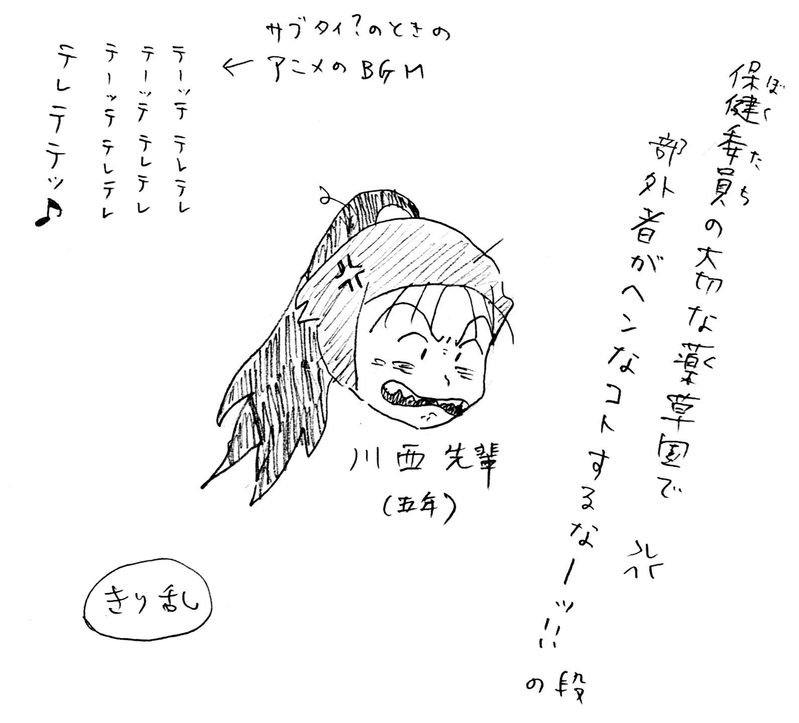 保健委員の大切な薬草園で
ぼくたち
く
部外者がヘンなコトするなーッ!!
の段
サブタイ?のときの
← アニメのBGM
テーッテテレテレ
テーッテテレテレ
テーッテテレテレ
テレテテッ♪
川西先輩
(五年)
きり乱